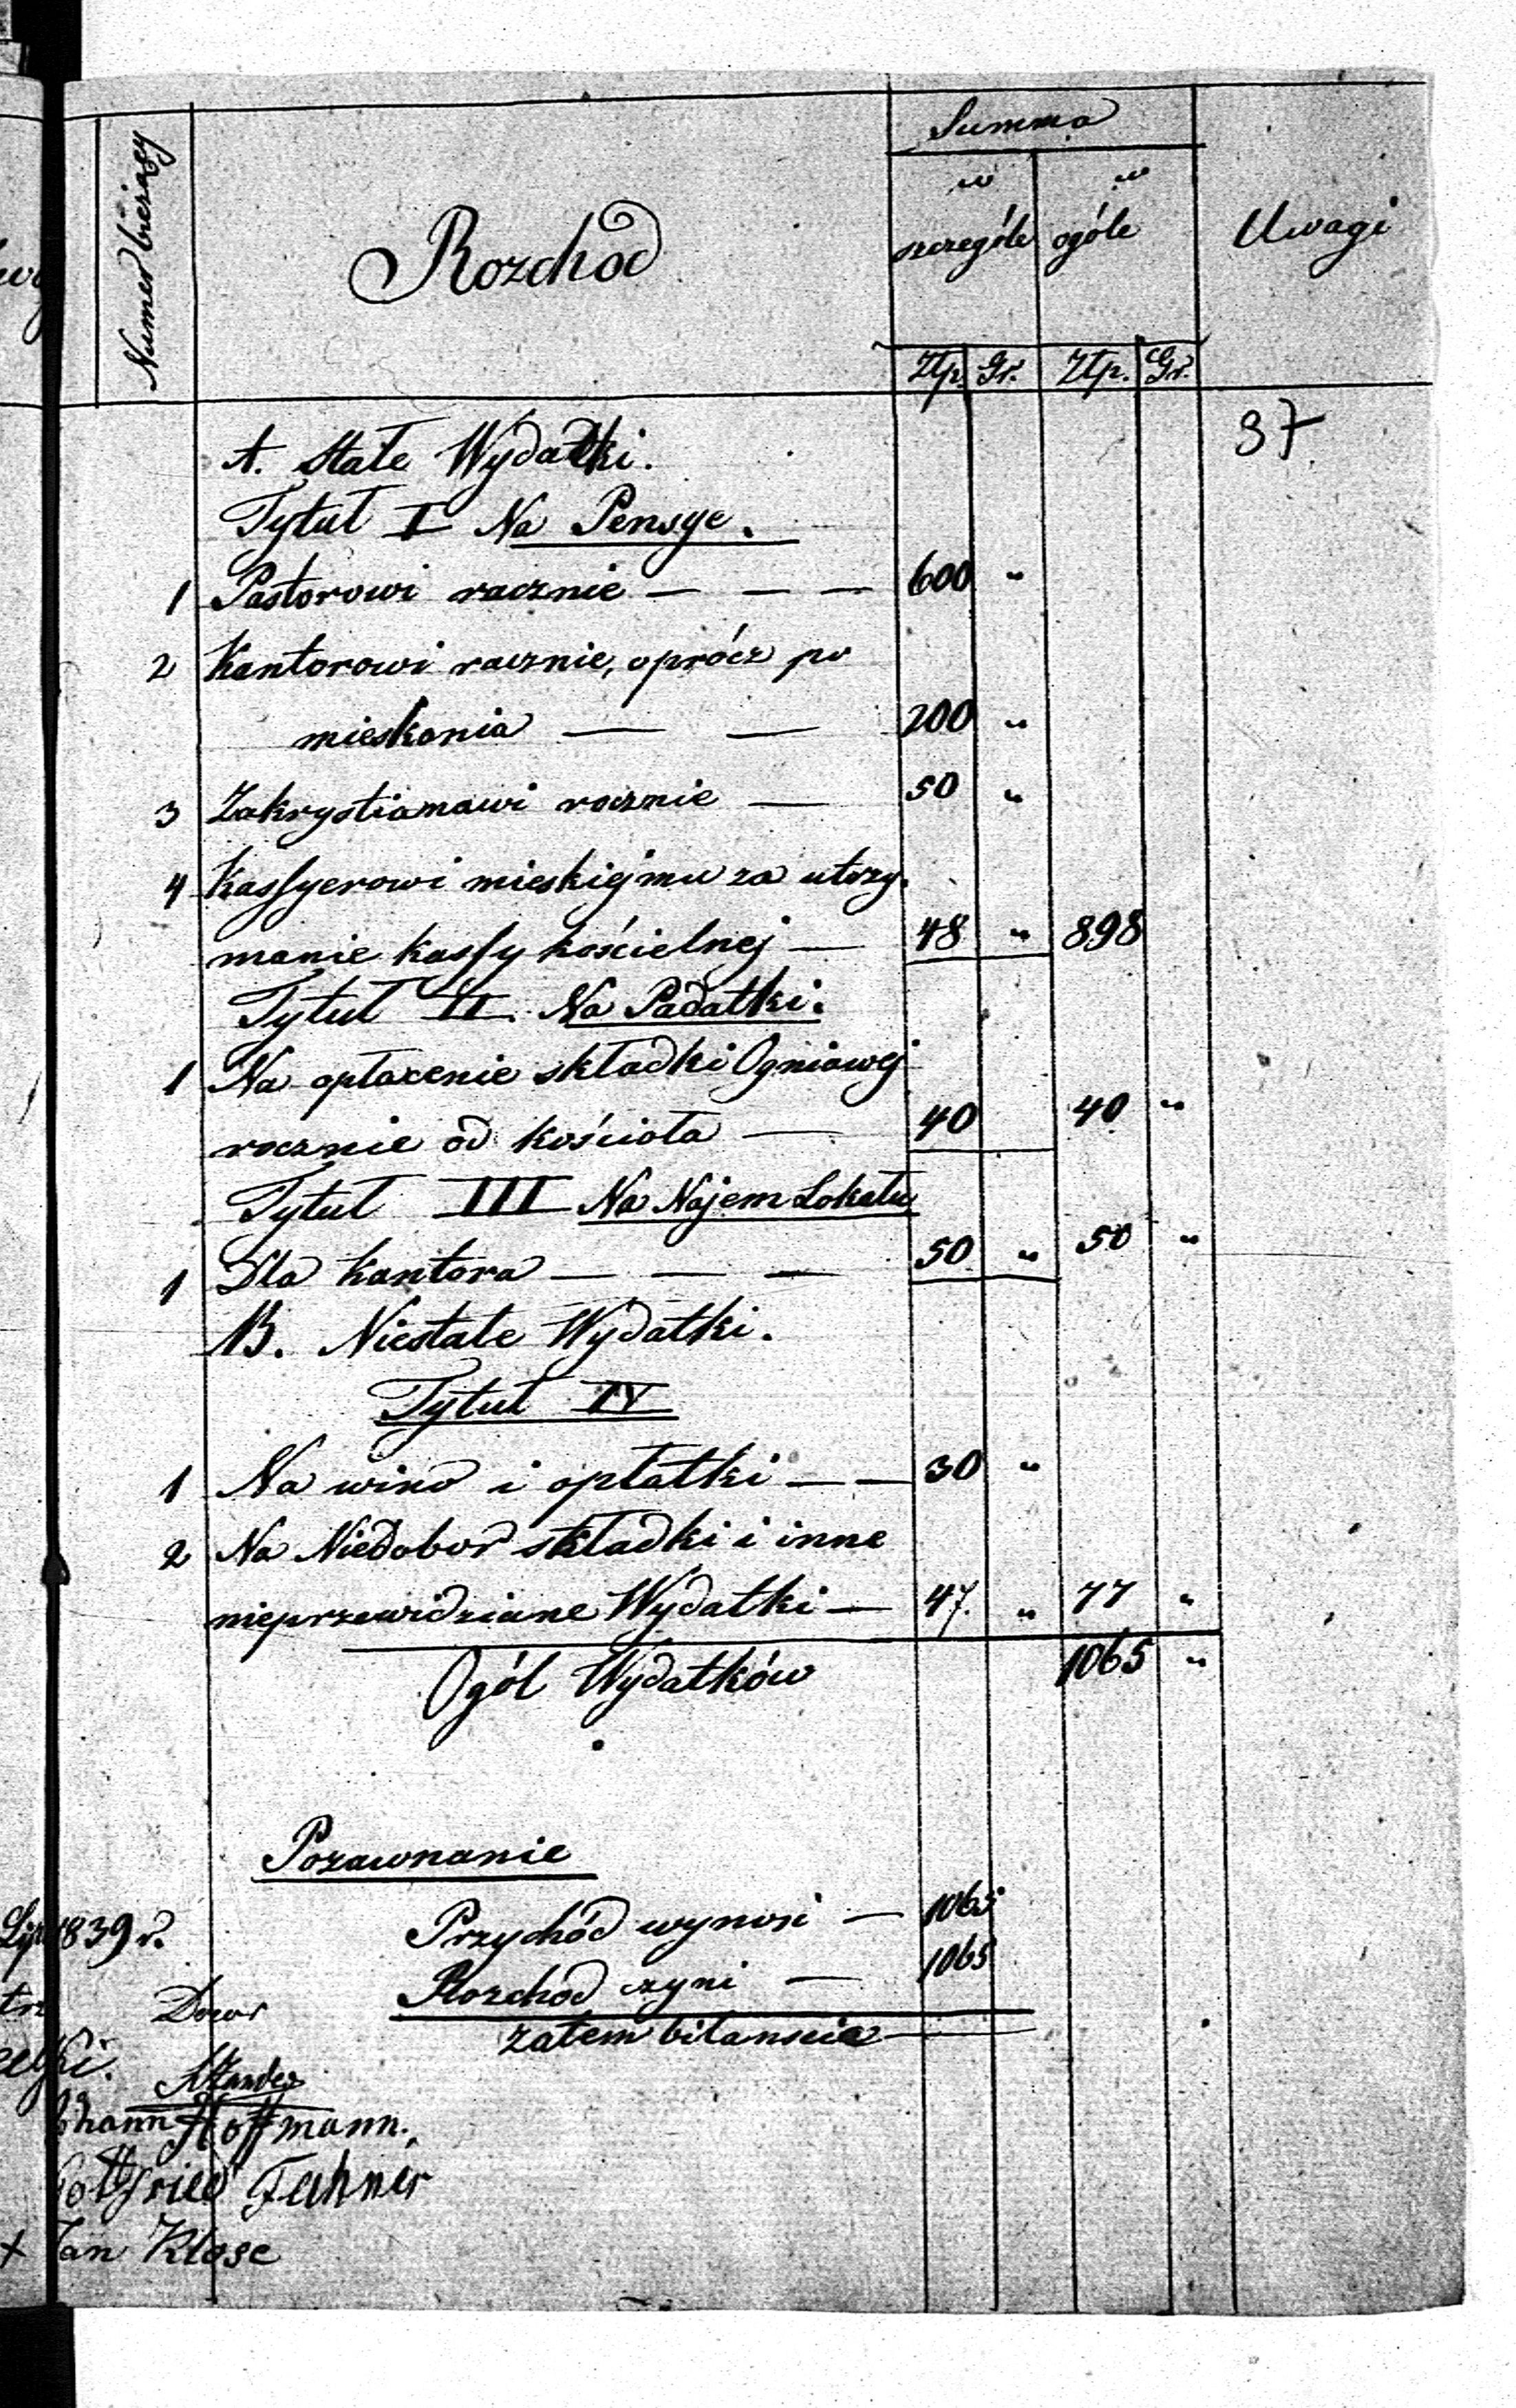 Numer bieżący
Rozchod
Summa
w szczególe
w ogóle
Uwagi
Ztp. Gr. Ztp. Gr.
37
A. Stałe Wydatki.
Tytuł I Na Pensye.
1 Pastorowi rocznie — — — 600 "
2 Kantorowi rocznie, oprócz po
mieskania — — 200 "
3 Zakrystianowi rocznie — 50 "
4 Kassyerowi mieskiéjmu za utrzy.
manie kassy kościelnej — 48 " 898
Tytuł II. Na Podatki.
1 Na opłacenie składki Ogniowej
rocznie od kościoła — 40 40 "
Tytuł III Na Najem Lokalu
1 Dla kantora — — — 50 " 50 "
B. Niestałe Wydatki.
Tytuł IV
1 Na wino i opłatki — — 30 "
2 Na Niedobor składki i inne
nieprzewidziane Wydatki — 47. " 77 "
Ogół Wydatków 1065 "
Porównanie
Przychód wynosi — 1065
Rozchod czyni — 1065
zatem bilansuie —
1839 r.
Dozor
Hoffmann.
Gottfried Fechner
+ Jan Klose